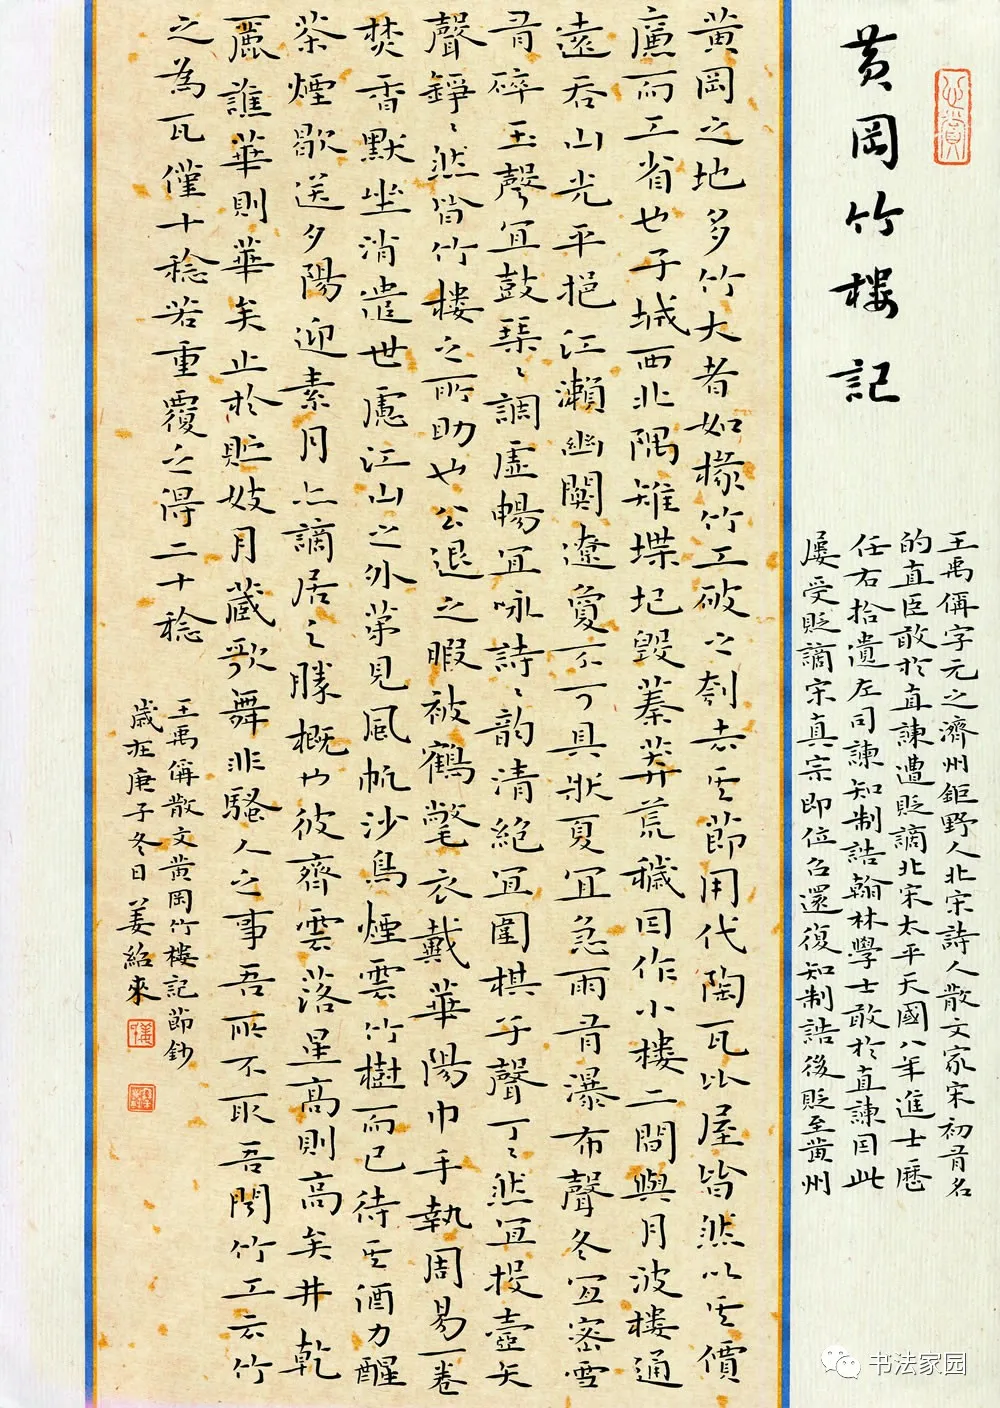 黄岡竹樓記
心賞
王禹偁字元之濟州鉅野人北宋詩人散文家宋初有名
的直臣敢於直諫遭貶謫北宋太平天國八年進士歷
任右拾遺左司諫知制誥翰林學士敢於直諫因此
屢受貶謫宋真宗即位召還復知制誥後貶至黄州
黄岡之地多竹大者如椽竹工破之刳去其節用代陶瓦比屋皆然以其價
廉而工省也子城西北隅雉堞圮毀蓁莽荒穢因作小樓二間與月波樓通
遠吞山光平挹江瀨幽闃遼夐不可具狀夏宜急雨有瀑布聲冬宜密雪
有碎玉聲宜鼓琴〻調虛暢宜咏詩〻韵清絶宜圍棋子聲丁〻然宜投壺矢
聲錚〻然皆竹樓之所助也公退之暇被鶴氅衣戴華陽巾手執周易一卷
焚香默坐消遣世慮江山之外第見風帆沙鳥煙雲竹樹而已待其酒力醒
茶煙歇送夕陽迎素月亦謫居之勝概也彼齊雲落星高則高矣井乾
麗譙華則華矣止於貯妓月藏歌舞非騷人之事吾所不取吾聞竹工云竹
之為瓦僅十稔若重覆之得二十稔
王禹偁散文黄岡竹樓記節鈔
歲在庚子冬日姜紹來
书法家园